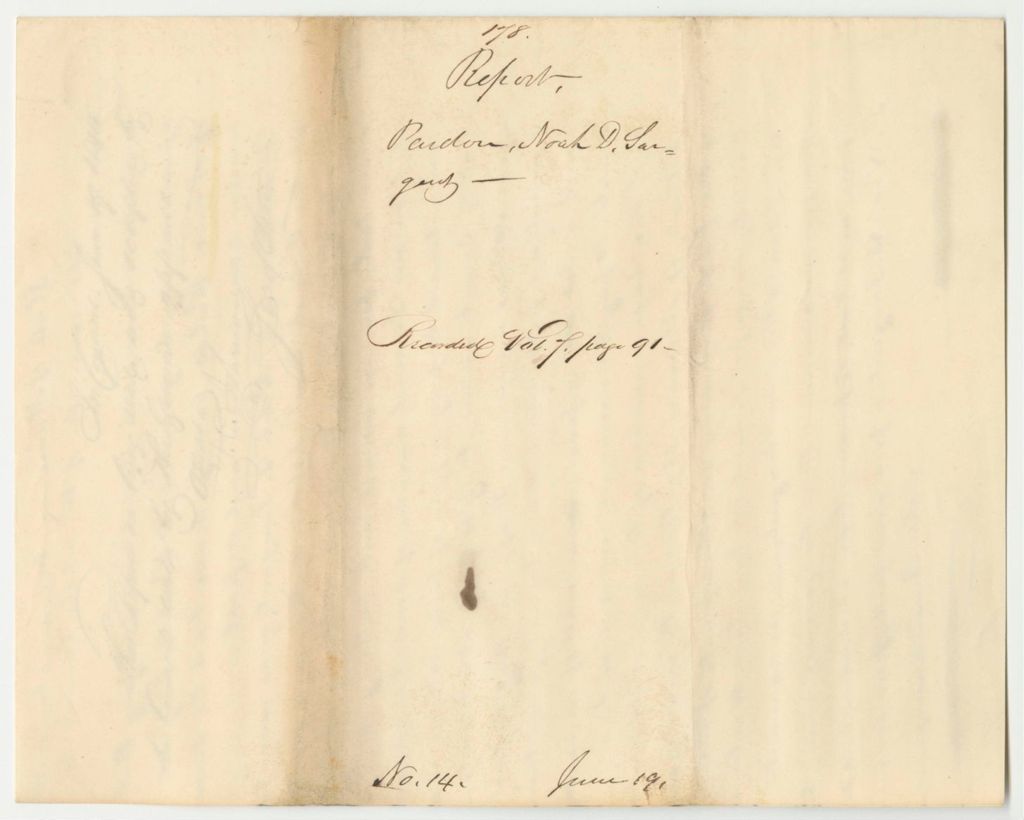 178.
Report,
Pardon, Noah D. Sar=
gent —
Recorded Vol. 7. page 91—
No. 14. June 19.